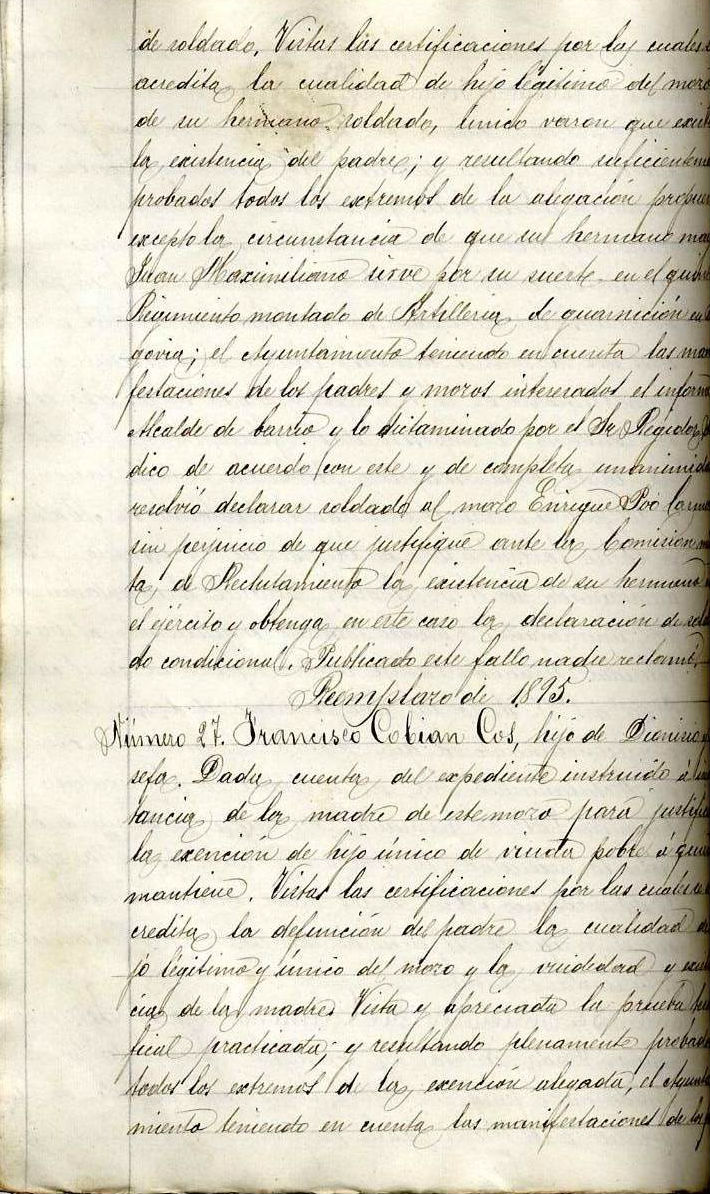 de soldado. Vistas las certificaciones por las cuales
acredita la cualidad de hijo legitimo del mozo
de su hermano soldado, único varon que exis
la existencia del padre; y resultando suficienteme
probados todos los extremos de la alegación propue
excepto la circunstancia de que su hermano may
Juan Maximiliano sirve por su suerte en el quin
Regimiento montado de Artilleria de guarnición en
govia; el Ayuntamiento teniendo en cuenta las man
festaciones de los padres y mozos interesados el inform
Alcalde de barrio y lo dictaminado por el Sr Regidor
dico de acuerdo con este y de completa unanimida
resolvió declarar soldado al mozo Enrique Poo
sin perjuicio de que justifique ante la Comision m
ta de Reclutamiento la existencia de su hermano
el ejército y obtenga en este caso la declaración de sol
do condicional. Publicado este fallo nadie reclamó.
Reemplazo de 1895.
Número 27. Francisco Cobian Cos, hijo de Dionisio y
sefa. Dada cuenta del expediente instruido á in
tancia de la madre de este mozo para justifi
la exención de hijo único de viuda pobre á quien
mantiene. Vistas las certificaciones por las cuales se
credita la defunción del padre la cualidad de
jo legitimo y único del mozo y la viudedad y exis
cia de la madre. Vista y apreciada la prueba tes
fical practicada; y resultando plenamente probado
todos los extremos de la exención alegada, el Ayunta
miento teniendo en cuenta las manifestaciones de los